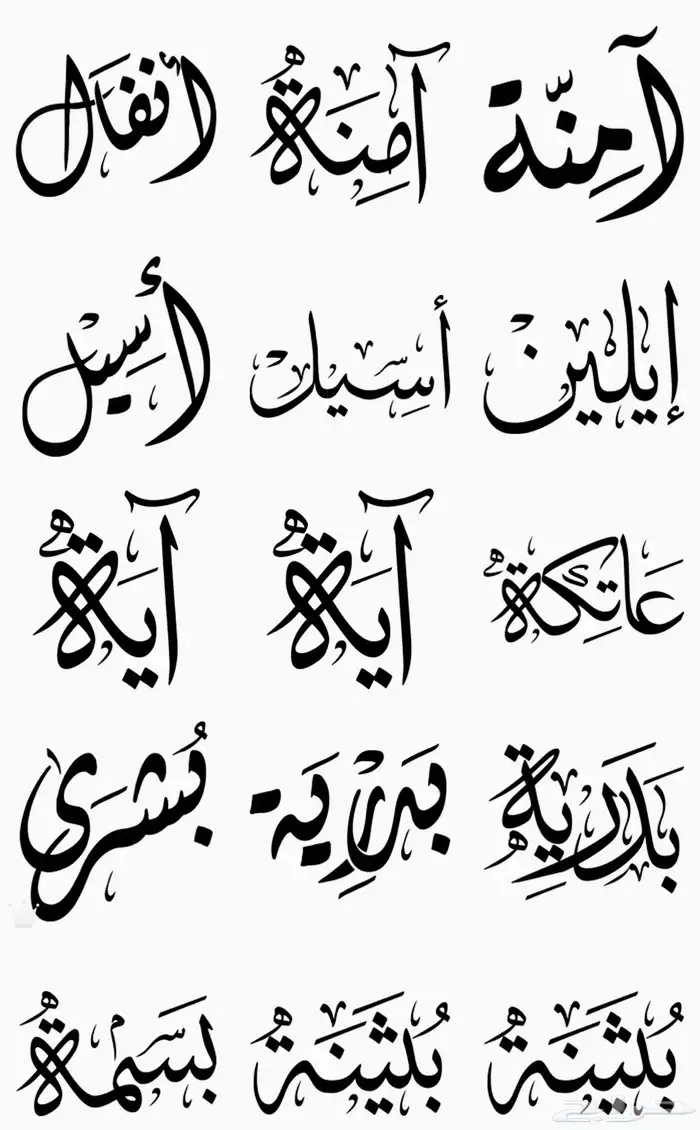 آمِنّة آمِنَةُ أنفَال
إيلين أسِيل أسِيل
عَاتِكَةُ آيَةُ آيَةُ
بَدَرِيةِ بَدَرِية بُشرَى
بُثينَةُ بُثينَةُ بَسمَةُ
حراج